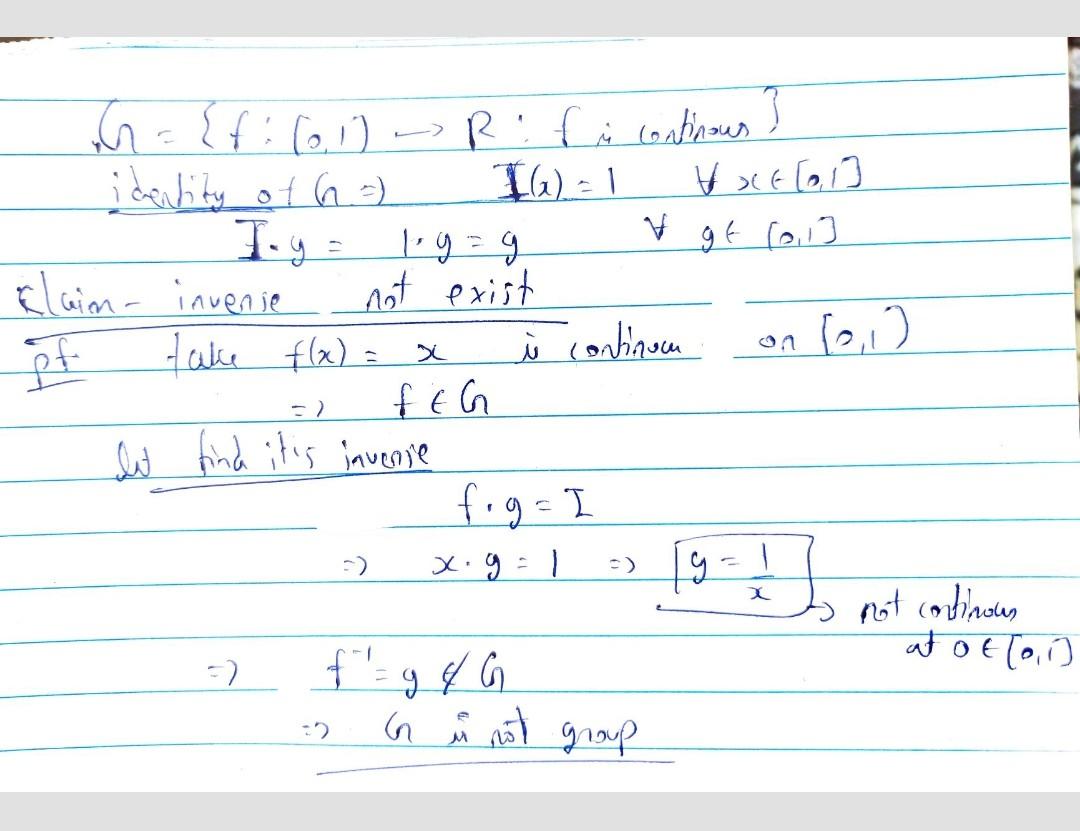 G = {f : [0,1] → R : f is continous}
identity of G ⇒ I(x) = 1 ∀ x ∈ [0,1]
I·g = 1·g = g ∀ g ∈ [0,1]
Claim - inverse not exist
pf take f(x) = x is continous on [0,1]
⇒ f ∈ G
let find it's inverse
f·g = I
⇒ x·g = 1 ⇒ g = 1/x
→ not continous
at 0 ∈ [0,1]
⇒ f⁻¹ = g ∉ G
⇒ G is not group